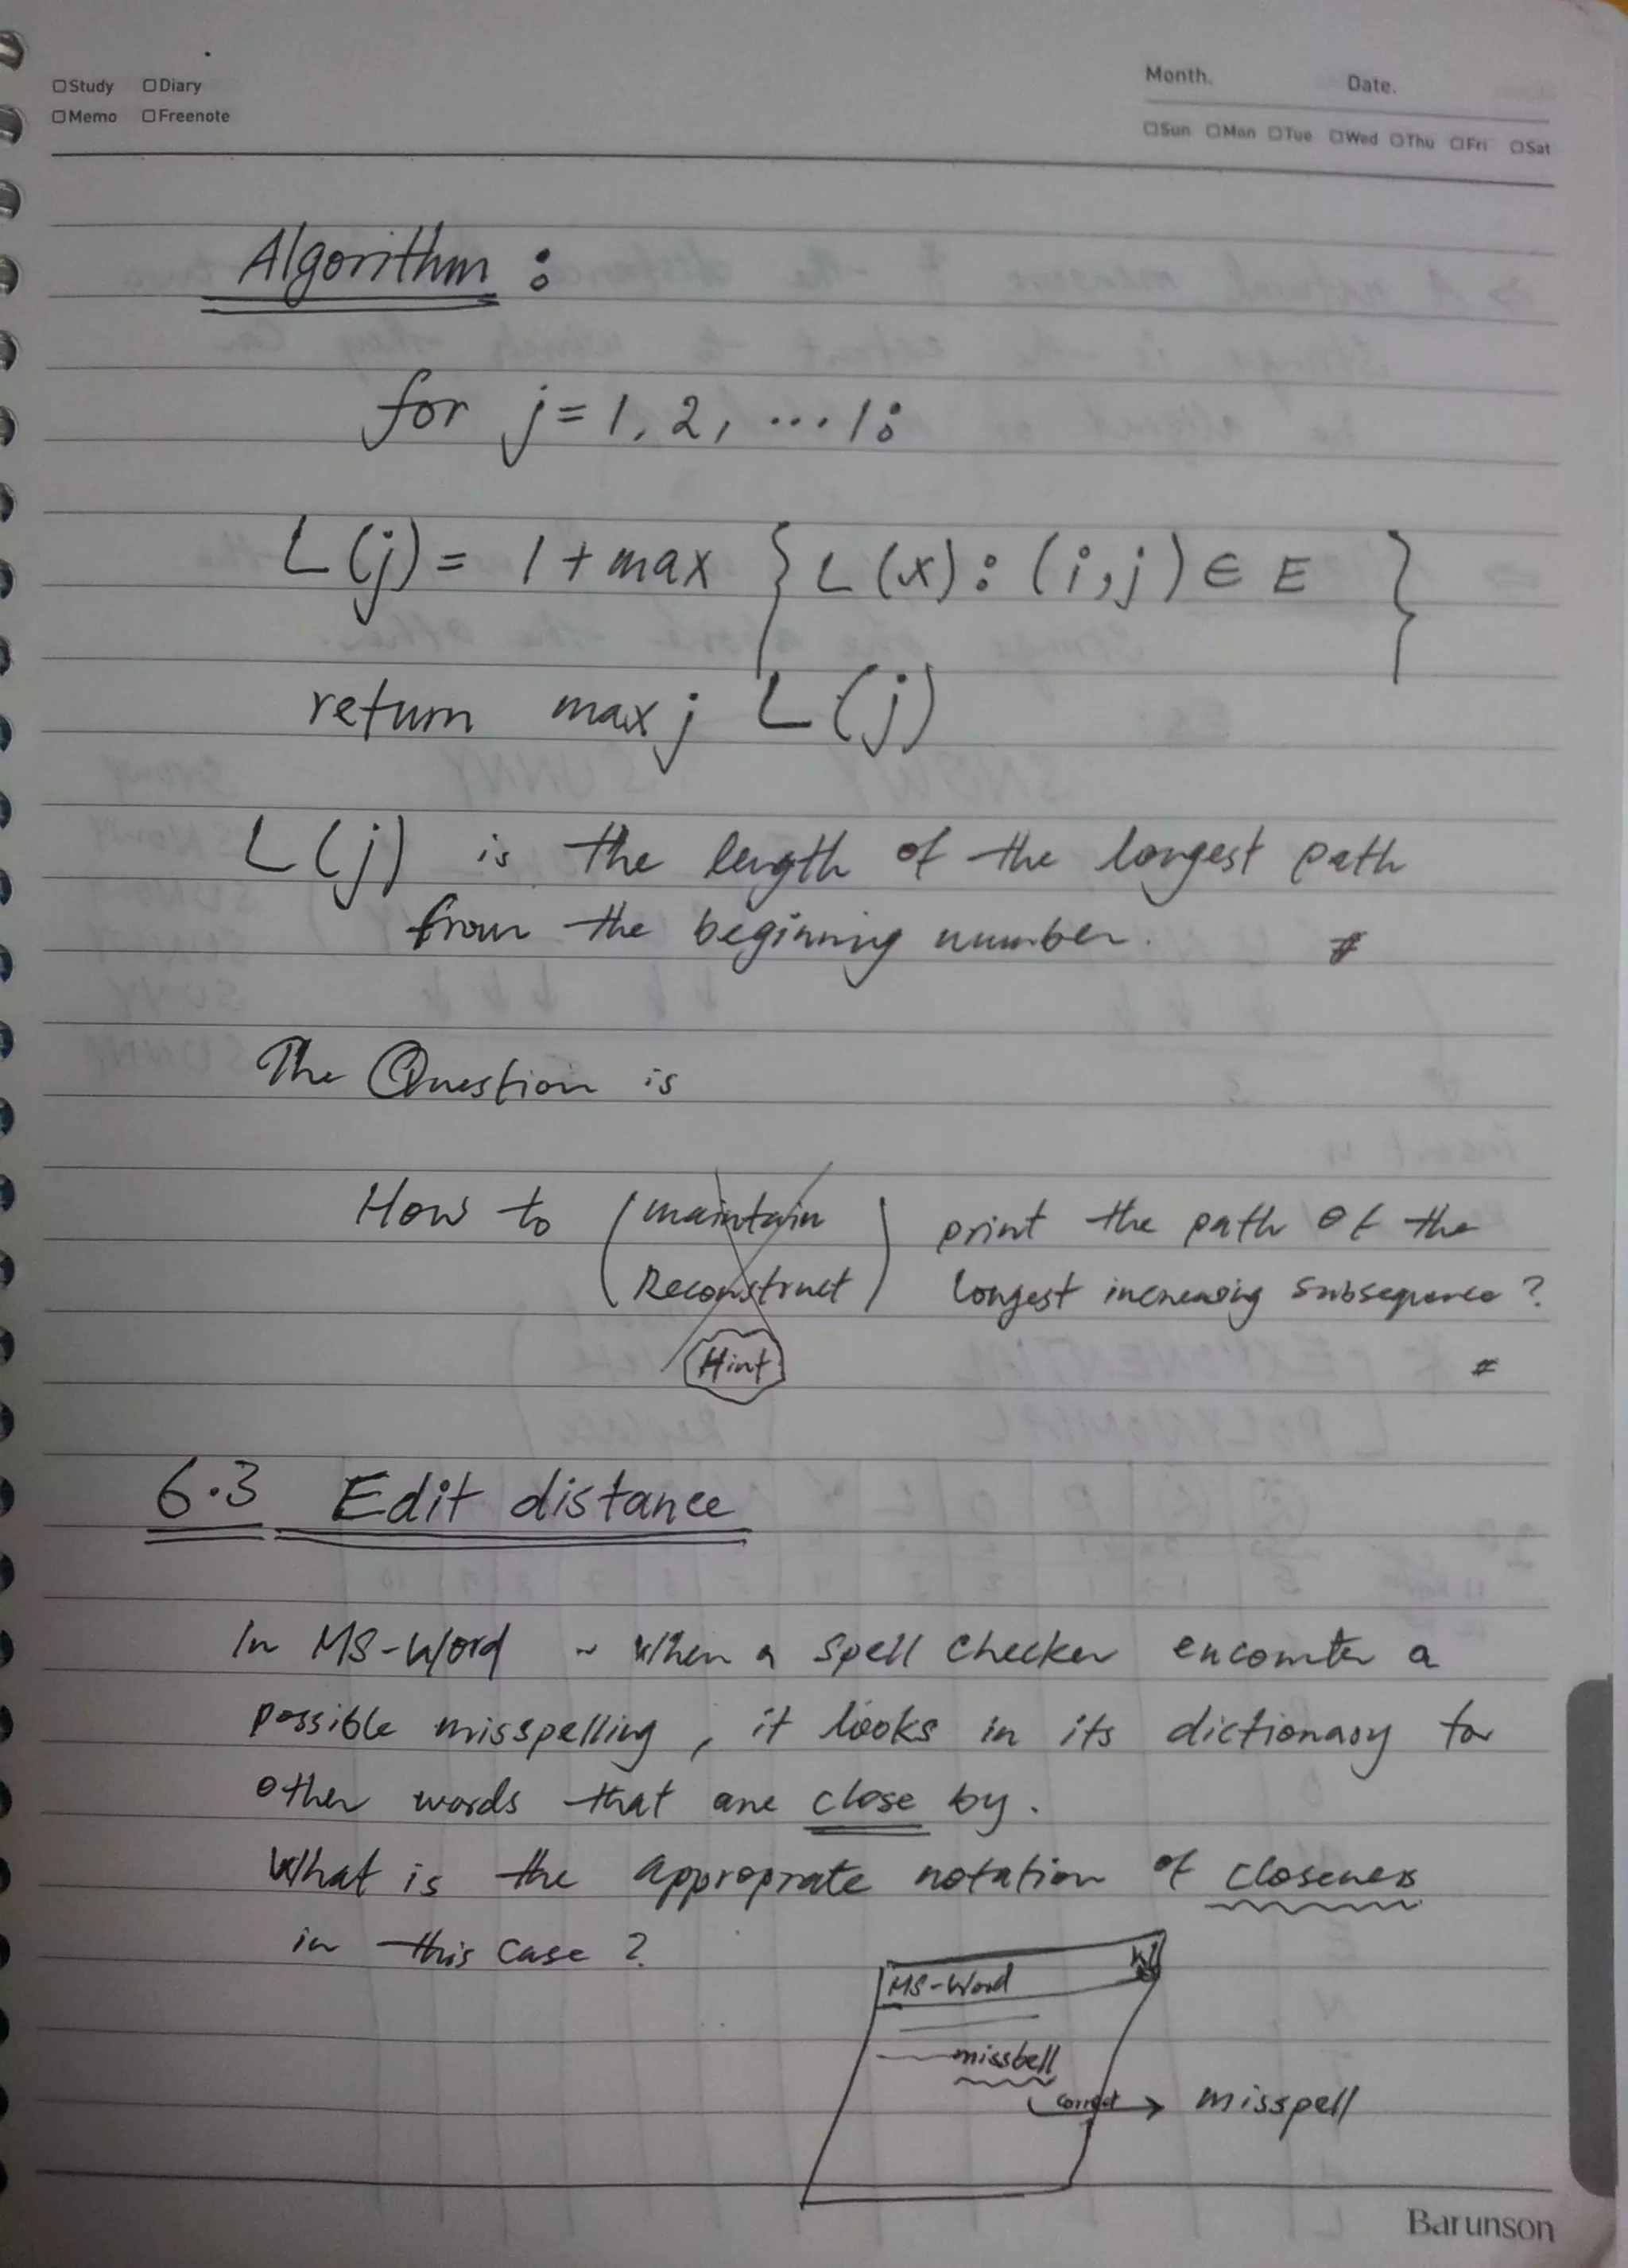 Study Diary
Memo Freenote
Month. Date.
Sun Mon Tue Wed Thu Fri Sat
Algorithm :
for j = 1, 2, ... 1:
L(j) = 1 + max { L(x) : (i,j) ∈ E }
return max j L(j)
L(j) is the length of the longest path
from the beginning number. #
The Question is
How to ( maintain ) print the path of the
Reconstruct longest increasing subsequence ?
Hint #
6.3 Edit distance
In MS-Word ~ When a spell checker encounter a
possible misspelling, it looks in its dictionary for
other words that are close by.
What is the approprate notation of closeness
in this case ?
MS-Word
missbell
correct → misspell
Barunson